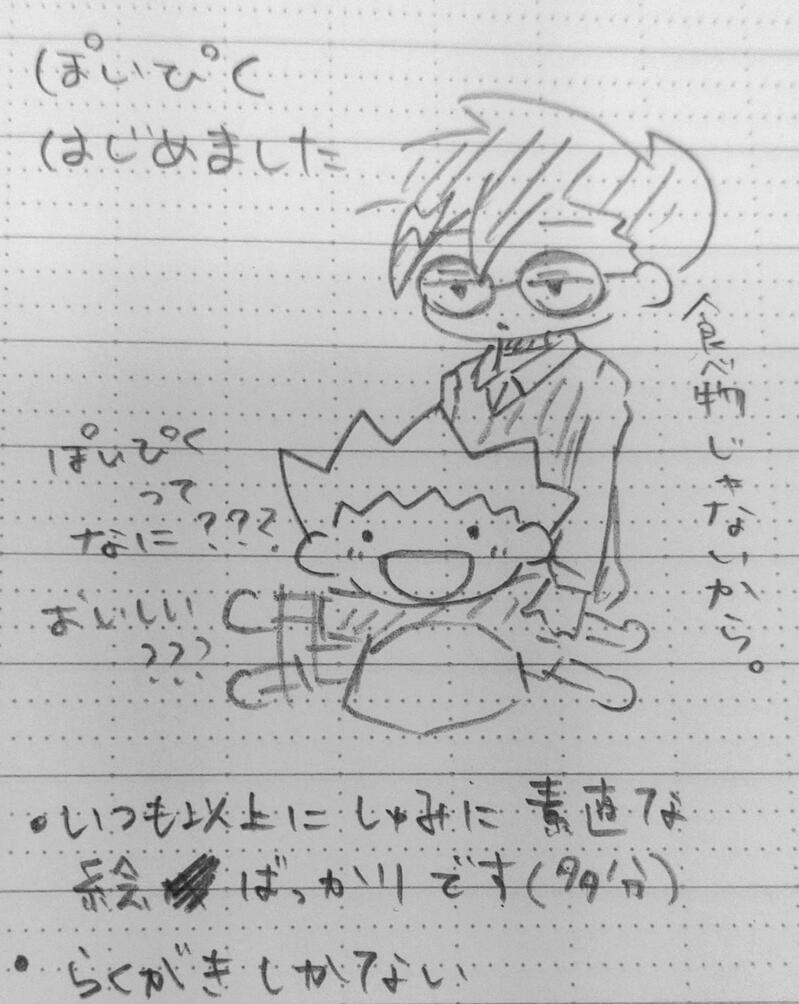 ぽいぴく
はじめました
食べ物じゃないから。
ぽいぴく
って
なに???
おいしい
???
・いつも以上にしゅみに素直な
絵ばっかりです(多分)
・らくがきしかない